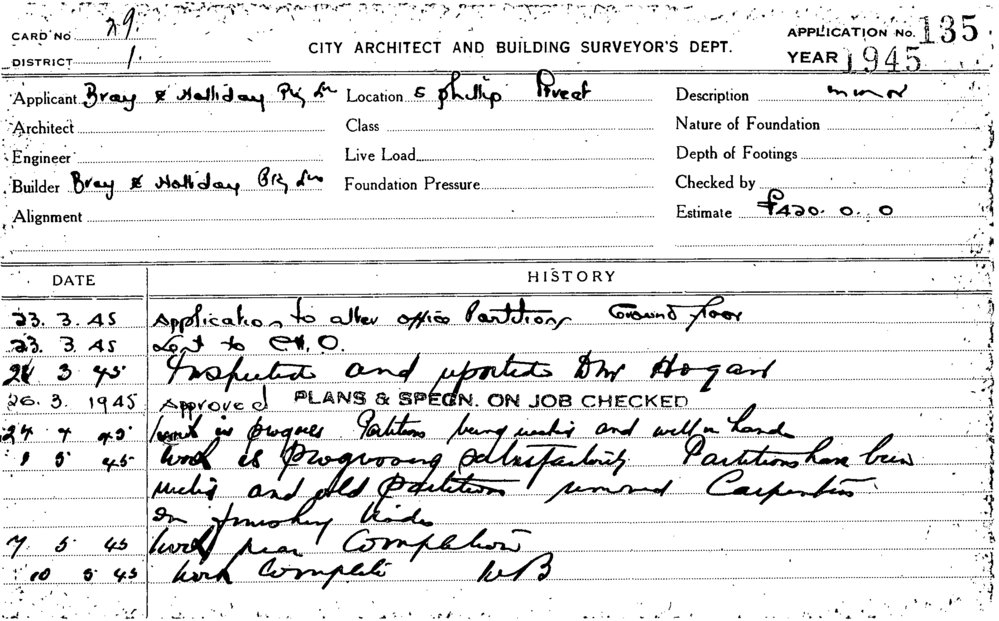 CARD No 29.
DISTRICT 1.
CITY ARCHITECT AND BUILDING SURVEYOR'S DEPT.
APPLICATION No. 135
YEAR 1945
Applicant Bray & Halliday Pty Location 5 Phillip Description minor
Architect Class Nature of Foundation
Engineer Live Load Depth of Footings
Builder Bray & Halliday Pty Foundation Pressure Checked by
Alignment Estimate £420. 0. 0
DATE HISTORY
23. 3. 45 Application to alter office Partitions Ground floor
23. 3. 45 Sent to
3 45 Inspected and reported Hogan
26. 3. 1945 Approved PLANS & SPECN. ON JOB CHECKED
24 4 45 Work in progress Partitions being and well in hand
1 5 45 Work is progressing satisfactorily Partitions have been
and old partitions removed Carpenters
on finishing
7 5 45 Work near Completion
10 5 45 Work Complete WB